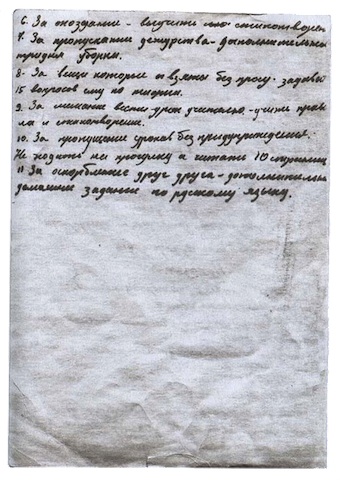 6. За опоздание - выучить стихотворен
7. За пропускание дежурства - дополнительны
три дня уборки.
8. За вещи которые взяты без просу - задавай
15 вопросов по истории.
9. За мешание вести урок учителю, - учить прави
ла и стихотворения.
10. За пропущение уроков без предупреждения.
Не ходить на прогулку а читать 10 страниц
11 За оскорбление друг друга - дополнительна
домашние задание по русскому языку.